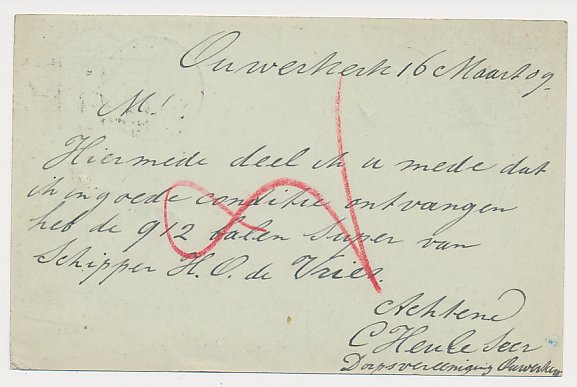 Ouwerkerk 16 Maart 09.
M!
Hiermede deel ik u mede dat
ik in goede conditie ontvangen
heb de 912 balen Super van
Schipper H. O. de Vries.
Achtend
C Heule Secr
Dorpsvereeniging Ouwerkerk